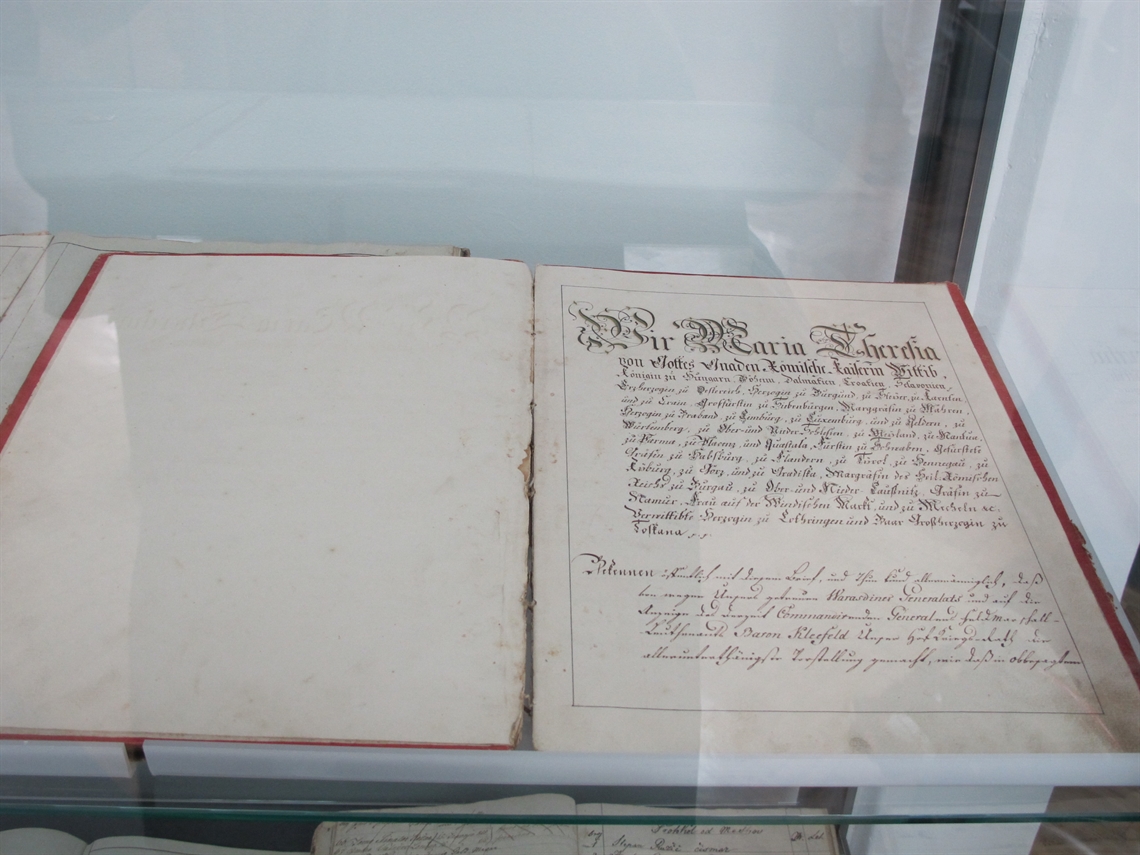 Wir Maria Theresia
von Gottes Gnaden Römische Kaiserin Wittib,
Königin zu Hungarn, Böhmn, Dalmatien, Croatien, Sclavonien,
Erzherzogin zu Oesterreich, Herzogin zu Burgund, zu Steÿer, zu Kärnten
und zu Crain, Großfürstin zu Siebenbürgen, Marggräfin zu Mähren,
Herzogin zu Braband, zu Limburg, zu Luxemburg, und zu Geldern, zu
Würtemberg, zu Ober- und Nieder Schlesien, zu Meyland, zu Mantua,
zu Parma, zu Placenz, und Quastala, Fürstin zu Schwaben, Gefürstete
Gräfin zu Habsburg, zu Flandern, zu Tÿrol, zu Hennegau, zu
Kÿburg, zu Görz, und zu Gradiska, Margräfin des Heil. Römischen
Reichs zu Burgau, zu Ober- und Nieder Laußnitz, Gräfin zu
Namur, Frau auf der Windischen Mark, und zu Mecheln ec.
Verwittibte Herzogin zu Lothringen und Baar Großherzogin zu
Toskana
Bekennen öffentlich mit diesem Brief, und Thun kund allermänniglich, daß
von wegen Unsers getreuen Warasdiner Generalats und auf die
Anzeige des derzeit Commandirenden General und Feldmarschall-
Leuthenants Baron Kleefeld Unser Hof Kriegs Rath die
allerunterthänigste Vorstellung gemacht, wie daß in obbesagtem